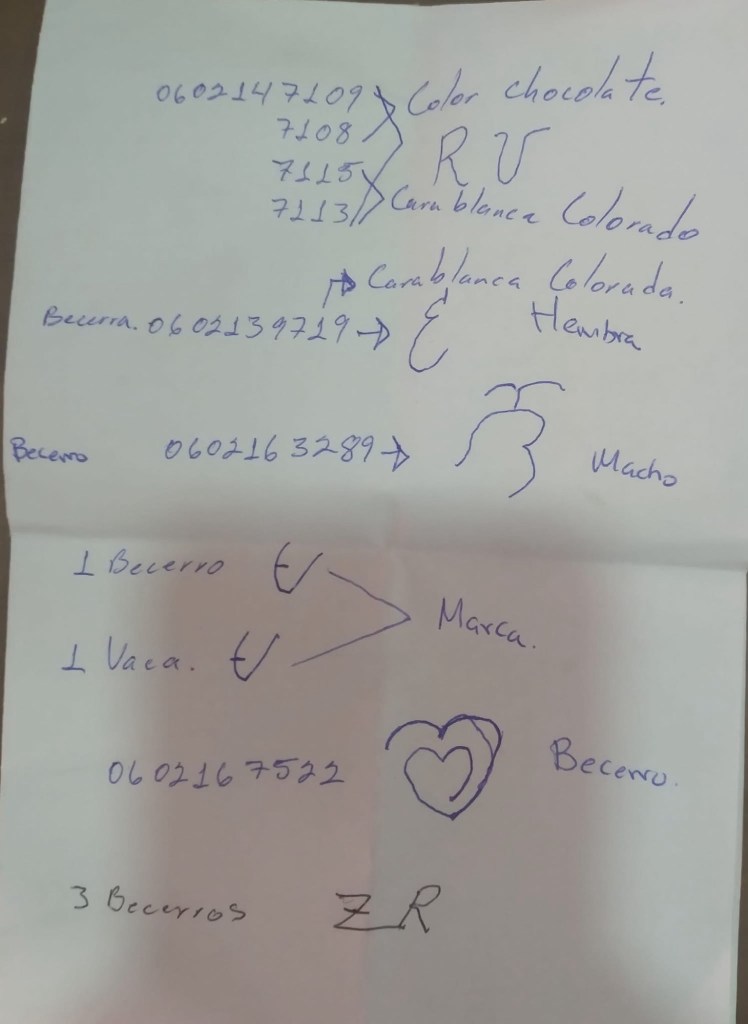 0602147109 Color chocolate.
7108
R V
7115
7113 Carablanca Colorado
Carablanca Colorada.
Becerra. 0602139719 → Hembra
Becerro 0602163289 → Macho
1 Becerro
Marca.
1 Vaca.
0602167522 Becerro.
3 Becerros ZR